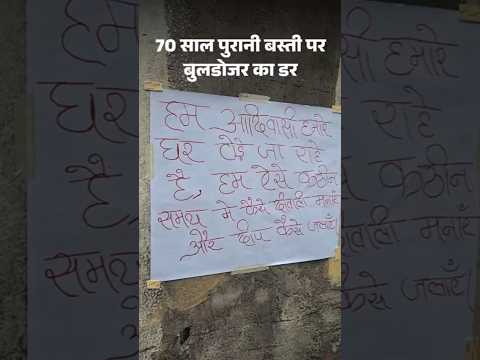 70 साल पुरानी बस्ती पर
बुलडोजर का डर
हम आदिवासी हमारे
घर तोड़े जा राहे
है, हम ऐसे कठीन
समय मे कैसे दीवाली मनाएँ
और दीप कैसे जलाएँ।